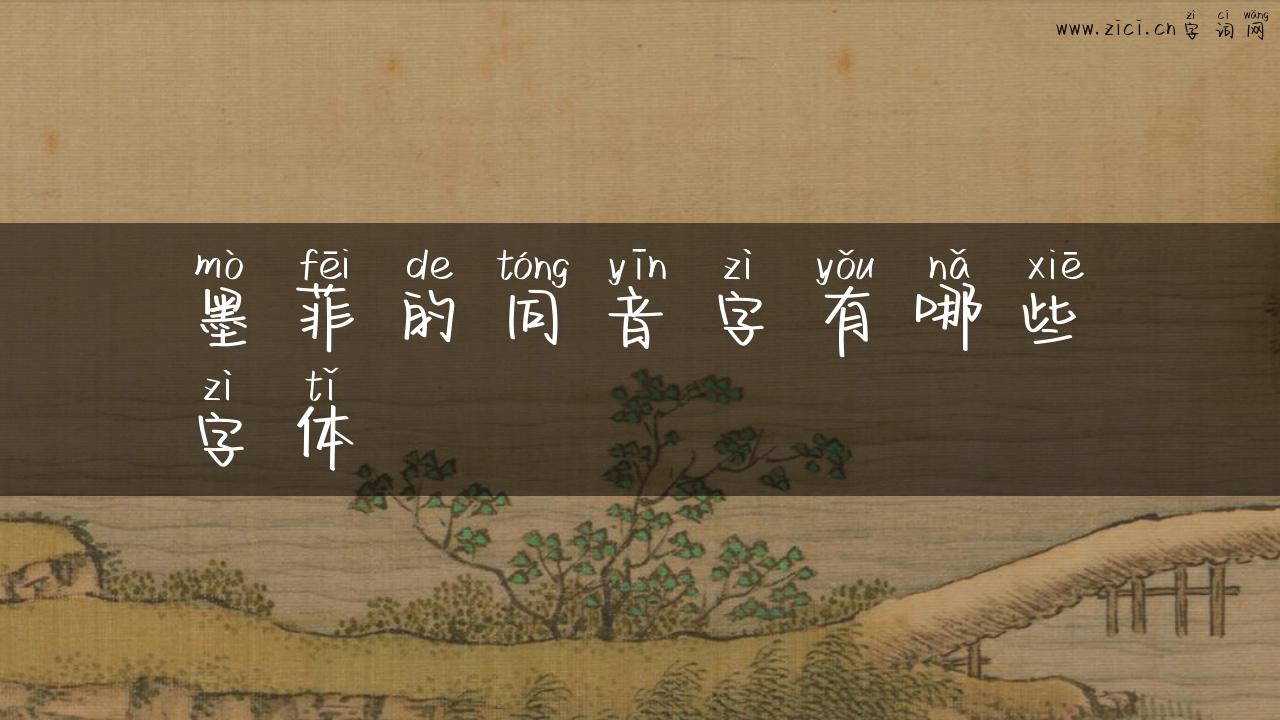 zì cí wǎng
www.zici.cn字词网
mò fēi de tóng yīn zì yǒu nǎ xiē
墨菲的同音字有哪些
zì tǐ
字体